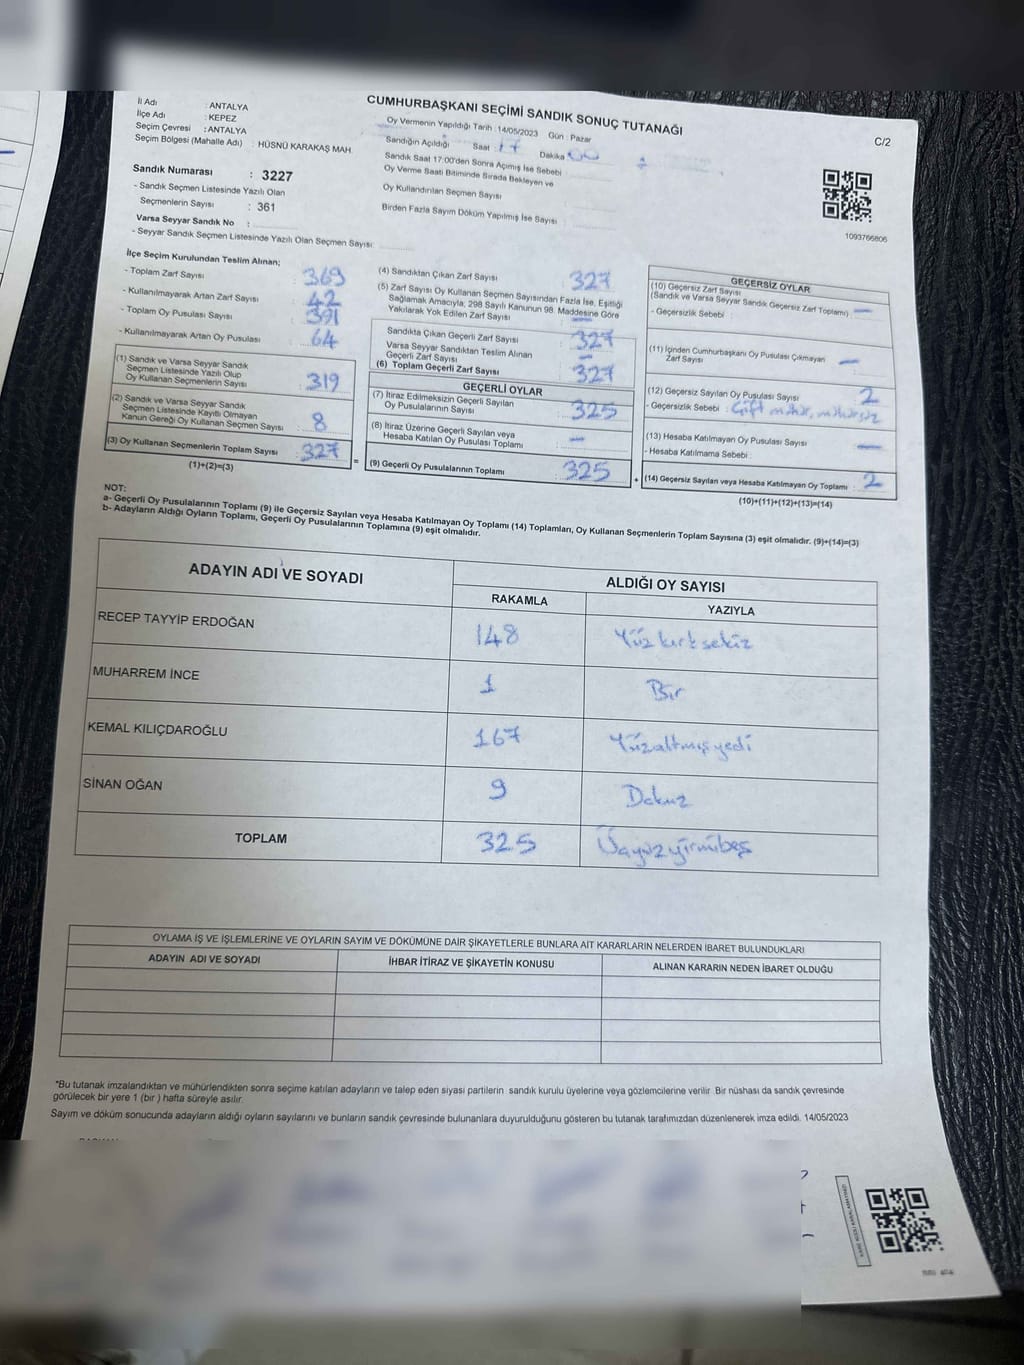 İl Adı : ANTALYA
İlçe Adı : KEPEZ
Seçim Çevresi : ANTALYA
Seçim Bölgesi (Mahalle Adı) : HÜSNÜ KARAKAŞ MAH.
CUMHURBAŞKANI SEÇİMİ SANDIK SONUÇ TUTANAĞI
C/2
Oy Vermenin Yapıldığı Tarih : 14/05/2023 Gün : Pazar
Sandığın Açıldığı Saat : 17 Dakika 00
Sandık Saat 17:00'den Sonra Açımış İse Sebebi
Oy Verme Saati Bitiminde Sırada Bekleyen ve
Oy Kullandırılan Seçmen Sayısı
Birden Fazla Sayım Döküm Yapılmış İse Sayısı
1093766806
Sandık Numarası : 3227
- Sandık Seçmen Listesinde Yazılı Olan
Seçmenlerin Sayısı : 361
Varsa Seyyar Sandık No :
- Seyyar Sandık Seçmen Listesinde Yazılı Olan Seçmen Sayısı:
İlçe Seçim Kurulundan Teslim Alınan;
- Toplam Zarf Sayısı : 369
- Kullanılmayarak Artan Zarf Sayısı : 42
- Toplam Oy Pusulası Sayısı : 391
- Kullanılmayarak Artan Oy Pusulası : 64
(1) Sandık ve Varsa Seyyar Sandık
Seçmen Listesinde Yazılı Olup
Oy Kullanan Seçmenlerin Sayısı : 319
(2) Sandık ve Varsa Seyyar Sandık
Seçmen Listesinde Kayıtlı Olmayan
Kanun Gereği Oy Kullanan Seçmen Sayısı : 8
(3) Oy Kullanan Seçmenlerin Toplam Sayısı : 327
(1)+(2)=(3)
(4) Sandıktan Çıkan Zarf Sayısı : 327
(5) Zarf Sayısı Oy Kullanan Seçmen Sayısından Fazla İse, Eşitliği
Sağlamak Amacıyla, 298 Sayılı Kanunun 98. Maddesine Göre
Yakılarak Yok Edilen Zarf Sayısı : —
Sandıkta Çıkan Geçerli Zarf Sayısı : 327
Varsa Seyyar Sandıktan Teslim Alınan
Geçerli Zarf Sayısı : —
(6) Toplam Geçerli Zarf Sayısı : 327
GEÇERLİ OYLAR
(7) İtiraz Edilmeksizin Geçerli Sayılan
Oy Pusulalarının Sayısı : 325
(8) İtiraz Üzerine Geçerli Sayılan veya
Hesaba Katılan Oy Pusulası Toplamı : —
= (9) Geçerli Oy Pusulalarının Toplamı : 325
GEÇERSİZ OYLAR
(10) Geçersiz Zarf Sayısı
(Sandık ve Varsa Seyyar Sandık Geçersiz Zarf Toplamı) : —
- Geçersizlik Sebebi :
(11) İçinden Cumhurbaşkanı Oy Pusulası Çıkmayan
Zarf Sayısı : —
(12) Geçersiz Sayılan Oy Pusulası Sayısı : 2
- Geçersizlik Sebebi : Çift mühür, mühürsüz
(13) Hesaba Katılmayan Oy Pusulası Sayısı : —
- Hesaba Katılmama Sebebi :
+ (14) Geçersiz Sayılan veya Hesaba Katılmayan Oy Toplamı : 2
(10)+(11)+(12)+(13)=(14)
NOT:
a- Geçerli Oy Pusulalarının Toplamı (9) ile Geçersiz Sayılan veya Hesaba Katılmayan Oy Toplamı (14) Toplamları, Oy Kullanan Seçmenlerin Toplam Sayısına (3) eşit olmalıdır. (9)+(14)=(3)
b- Adayların Aldığı Oyların Toplamı, Geçerli Oy Pusulalarının Toplamına (9) eşit olmalıdır.
ADAYIN ADI VE SOYADI ALDIĞI OY SAYISI
RAKAMLA YAZIYLA
RECEP TAYYİP ERDOĞAN 148 Yüz kırk sekiz
MUHARREM İNCE 1 Bir
KEMAL KILIÇDAROĞLU 167 Yüzaltmışyedi
SİNAN OĞAN 9 Dokuz
TOPLAM 325 Üçyüzyirmibeş
OYLAMA İŞ VE İŞLEMLERİNE VE OYLARIN SAYIM VE DÖKÜMÜNE DAİR ŞİKAYETLERLE BUNLARA AİT KARARLARIN NELERDEN İBARET BULUNDUKLARI
ADAYIN ADI VE SOYADI İHBAR İTİRAZ VE ŞİKAYETİN KONUSU ALINAN KARARIN NEDEN İBARET OLDUĞU
*Bu tutanak imzalandıktan ve mühürlendikten sonra seçime katılan adayların ve talep eden siyasi partilerin sandık kurulu üyelerine veya gözlemcilerine verilir. Bir nüshası da sandık çevresinde
görülecek bir yere 1 (bir ) hafta süreyle asılır.
Sayım ve döküm sonucunda adayların aldığı oyların sayılarını ve bunların sandık çevresinde bulunanlara duyurulduğunu gösteren bu tutanak tarafımızdan düzenlenerek imza edildi. 14/05/2023